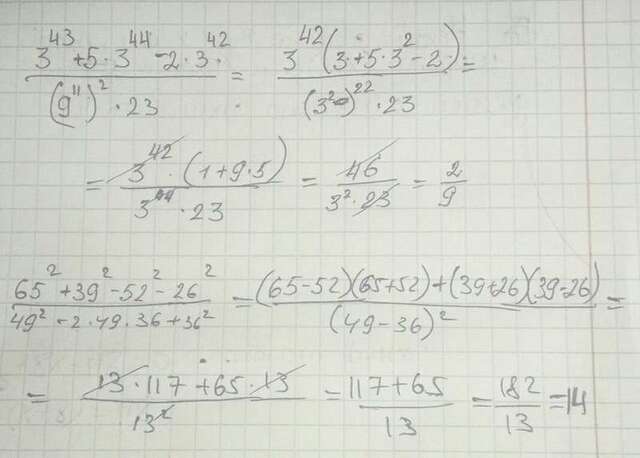 (3^43 + 5·3^44 - 2·3^42) / ((9^11)^2 · 23) = (3^42 (3 + 5·3^2 - 2)) / ((3^2)^22 · 23) =
= (3^42 · (1 + 9·5)) / (3^44 · 23) = 46 / (3^2 · 23) = 2/9
(65^2 + 39^2 - 52^2 - 26^2) / (49^2 - 2·49·36 + 36^2) = ((65-52)(65+52) + (39+26)(39-26)) / (49-36)^2 =
= (13·117 + 65·13) / 13^2 = (117+65) / 13 = 182/13 = 14